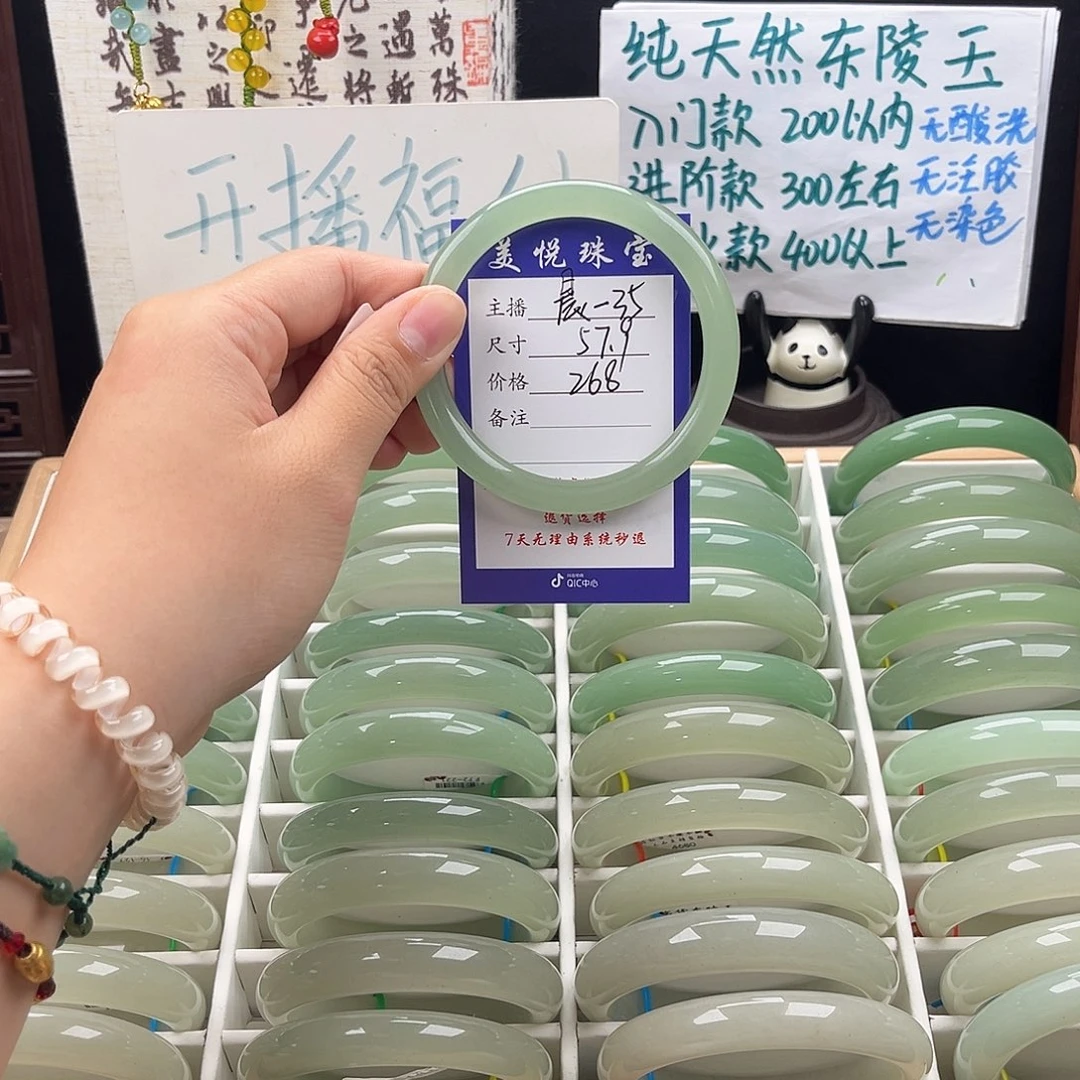 萬殊
遇暫
之將
遷
以之
盡
哉
纯天然东陵玉
入门款 200以内 无酸洗
进阶款 300左右 无注胶
款 400以上 无染色
开播福
美悦珠宝
主播 晨-35
尺寸 57.9
价格 268
备注
退货选择
7天无理由系统秒退
QIC中心
4680